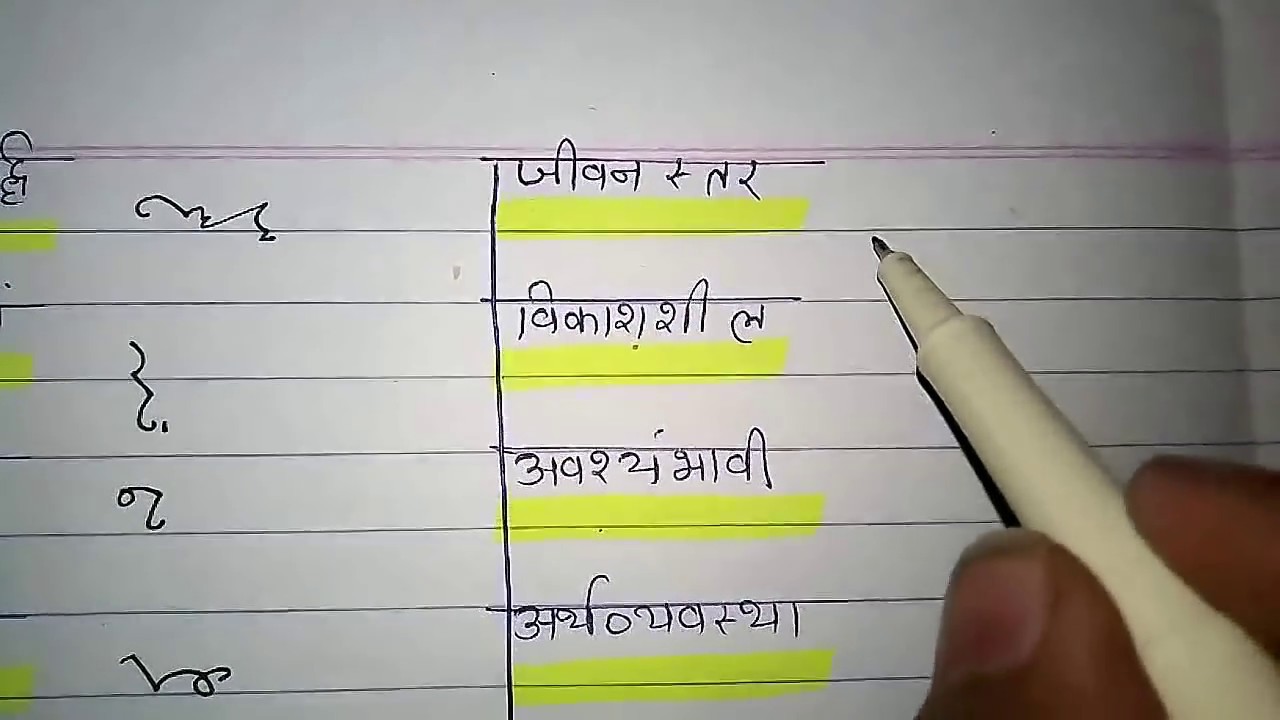 जीवन स्तर
विकाशशील
अवश्यंभावी
अर्थव्यवस्था